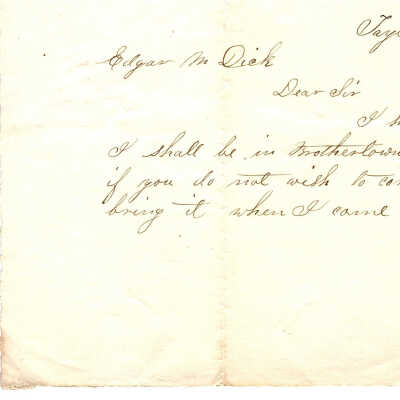 Tay
Edgar M Dick
Dear Sir
I
I shall be in Brothertown
if you do not wish to
bring it when I come